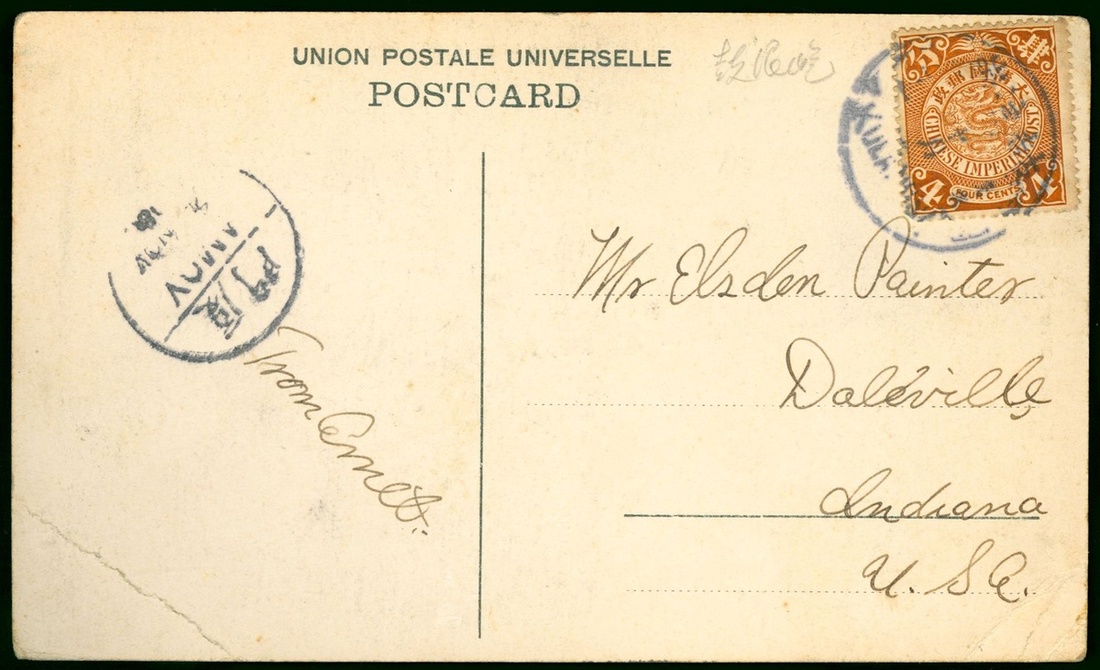 UNION POSTALE UNIVERSELLE
POSTCARD
大清郵政
CHINESE IMPERIAL POST
4 FOUR CENTS 4
AMOY
NOV
廈門
Mr Elsden Painter
Daleville,
Indiana
U. S. A.
From Ernest